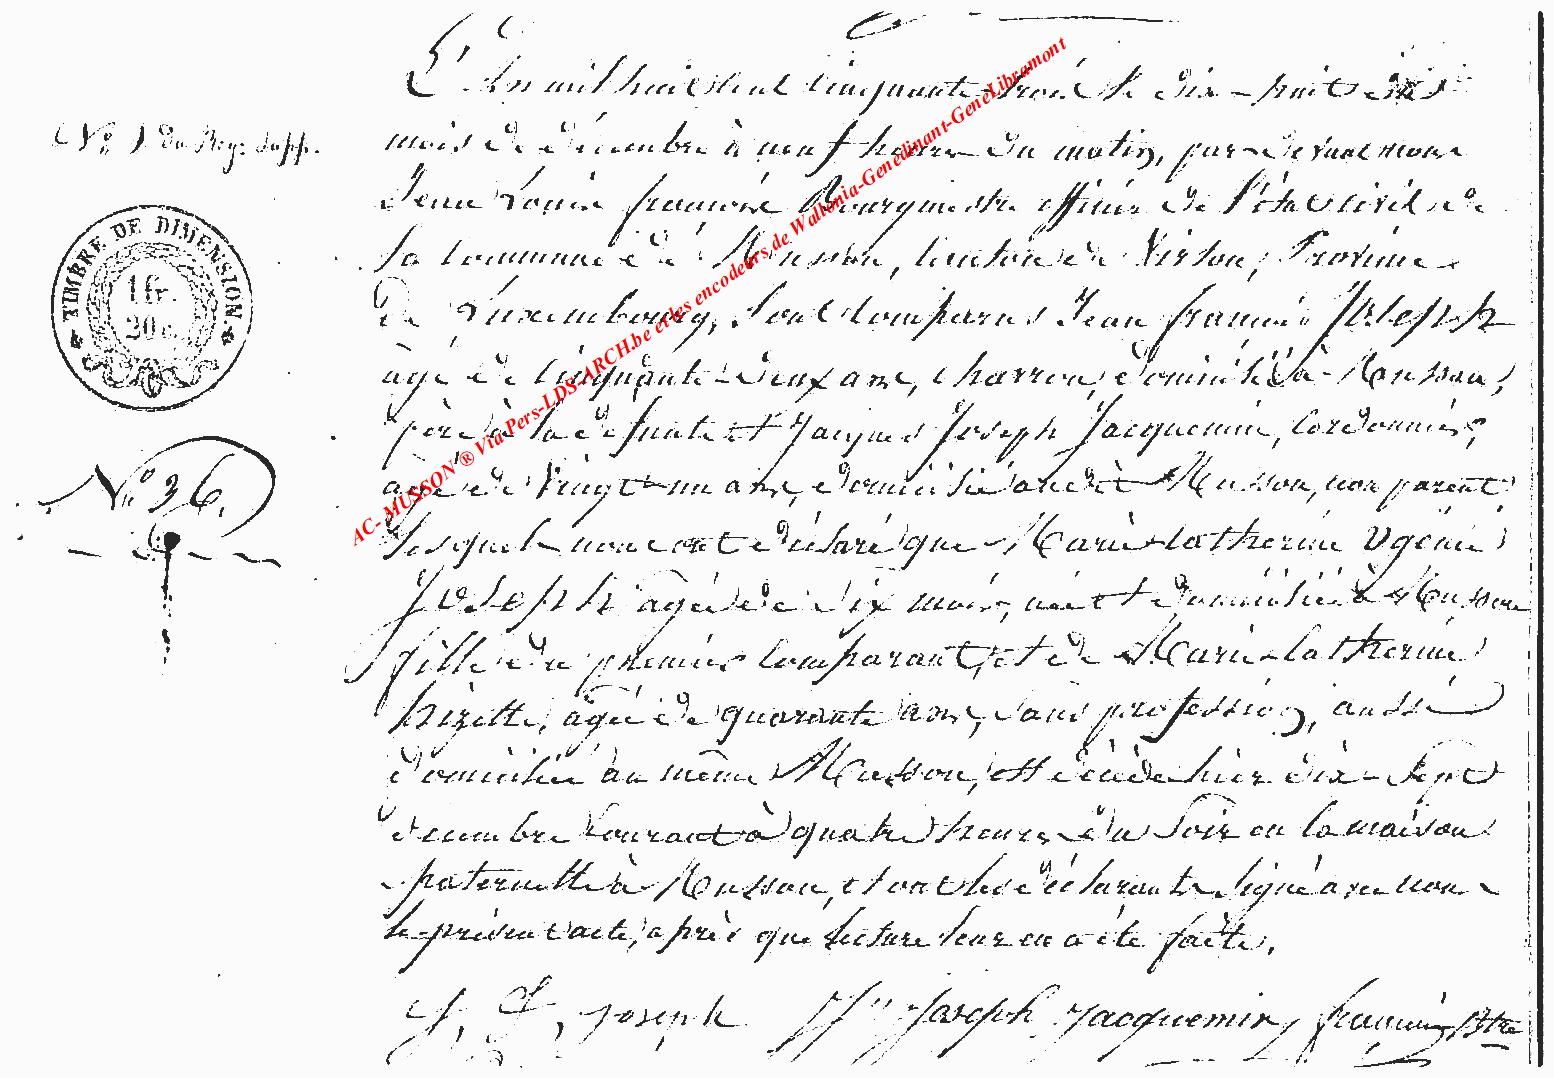 L'An mil huit cent cinquante trois le dix-huit du
mois de décembre à neuf heures du matin, par devant nous
Jean Louis françois Bourgmestre officier de l'état civil de
la commune de Musson, Canton de Virton, Province
de Luxembourg, sont comparus Jean françois Joseph
agé de cinquante-deux ans, charron, domicilié à Musson,
père à la défunte et Jacques Joseph Jacquemin, Cordonnier,
agé de vingt-un ans, domicilié audit Musson, non parent
Lesquels nous ont déclaré que Marie Catherine Ugénie
Joseph agée de dix mois, née et domiciliée à Musson
fille du premier comparant, et de Marie-Catherine
hizette, agée de quarante ans, sans profession, aussi
domiciliée au même Musson, est décédée hier dix-sept
décembre courant à quatre heures du soir en la maison
paternelle à Musson, et ont les déclarants signé avec nous
le présent acte, après que lecture leur en a été faite.
J, F, Joseph Jq Joseph Jacquemin françois Btre
No 1 du Reg: supp.
TIMBRE DE DIMENSION
1 fr.
20 c.
No 36.
AC- MUSSON ® Via Pers-LDS-ARCH.be et les encodeurs de Wallonia-Genedinant-GeneLibramont